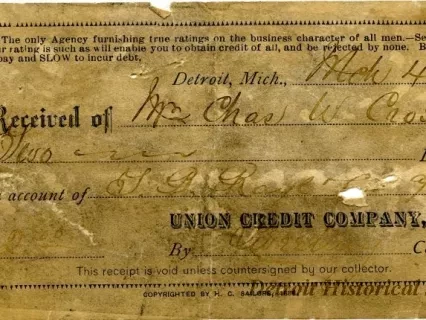 The only Agency furnishing true ratings on the business character of all men.—Se
ur rating is such as will enable you to obtain credit of all, and be rejected by none. B
pay and SLOW to incur debt,
Detroit, Mich., Mch 4
Received of Mr Chas W
Two
n account of
UNION CREDIT COMPANY,
By C
This receipt is void unless countersigned by our collector.
COPYRIGHTED BY H. C.
Detroit Historical